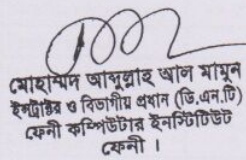 মোহাম্মদ আব্দুল্লাহ আল মামুন
ইন্সট্রাক্টর ও বিভাগীয় প্রধান (ডি.এন.টি)
ফেনী কম্পিউটার ইনস্টিটিউট
ফেনী ।